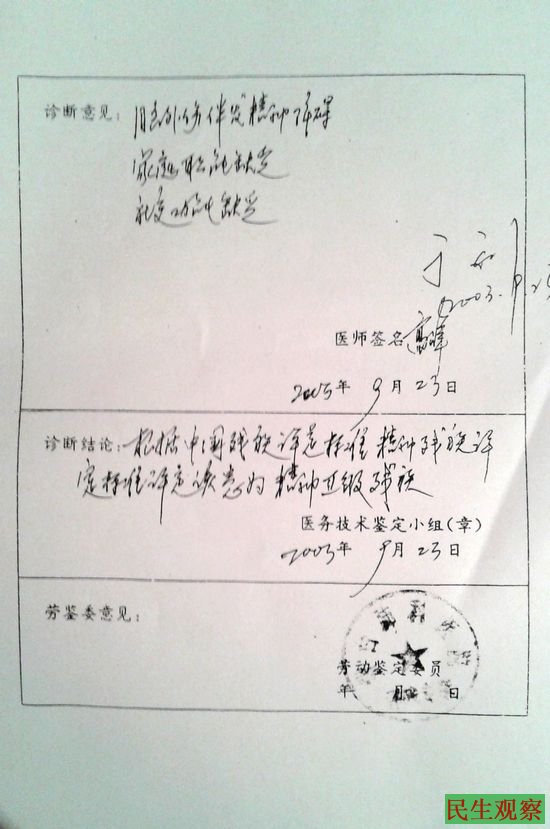 诊断意见：脑外伤伴发精神障碍
家庭职能缺乏
社交功能缺乏
医师签名
2003年 9月 23日
诊断结论：根据中国残疾评定标准 精神残疾评
定标准评定该患为 精神Ⅱ级残疾
医务技术鉴定小组(章)
2003年 9月 23日
劳鉴委意见：
劳动鉴定委员
年 月 日
民生观察